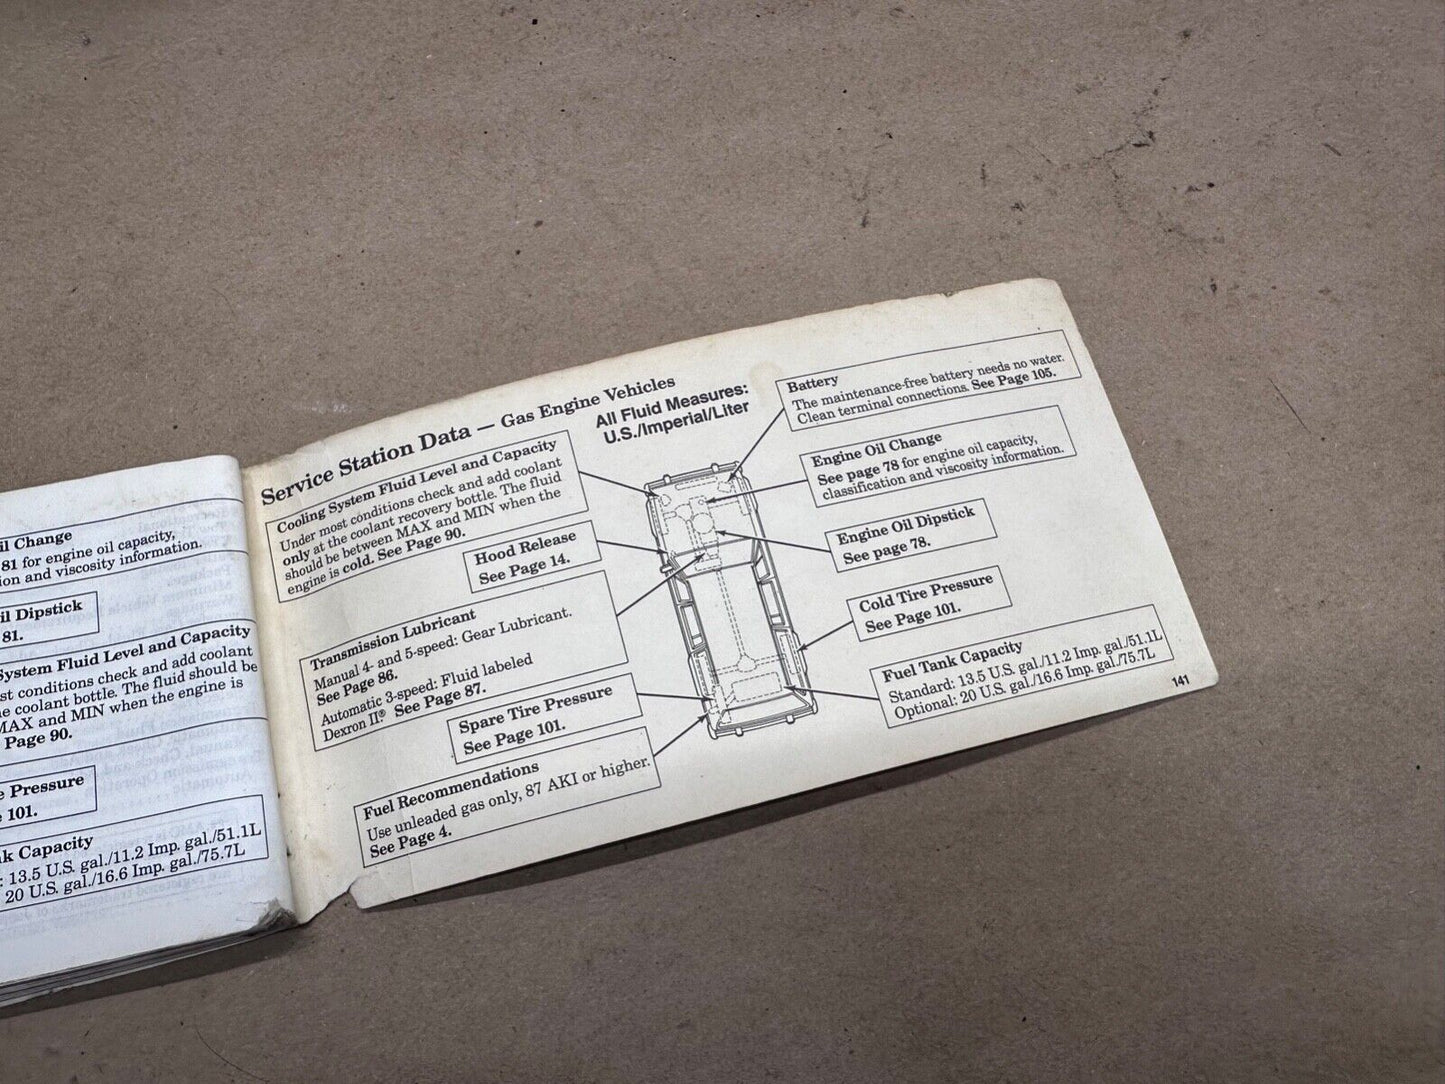 il Change
81 for engine oil capacity,
ion and viscosity information.
il Dipstick
81.
System Fluid Level and Capacity
st conditions check and add coolant
e coolant bottle. The fluid should be
MAX and MIN when the engine is
Page 90.
e Pressure
101.
nk Capacity
: 13.5 U.S. gal./11.2 Imp. gal./51.1L
20 U.S. gal./16.6 Imp. gal./75.7L
Service Station Data — Gas Engine Vehicles
All Fluid Measures:
U.S./Imperial/Liter
Cooling System Fluid Level and Capacity
Under most conditions check and add coolant
only at the coolant recovery bottle. The fluid
should be between MAX and MIN when the
engine is cold. See Page 90.
Hood Release
See Page 14.
Transmission Lubricant
Manual 4- and 5-speed: Gear Lubricant.
See Page 86.
Automatic 3-speed: Fluid labeled
Dexron II® See Page 87.
Spare Tire Pressure
See Page 101.
Fuel Recommendations
Use unleaded gas only, 87 AKI or higher.
See Page 4.
Battery
The maintenance-free battery needs no water.
Clean terminal connections. See Page 105.
Engine Oil Change
See page 78 for engine oil capacity,
classification and viscosity information.
Engine Oil Dipstick
See page 78.
Cold Tire Pressure
See Page 101.
Fuel Tank Capacity
Standard: 13.5 U.S. gal./11.2 Imp. gal./51.1L
Optional: 20 U.S. gal./16.6 Imp. gal./75.7L
141